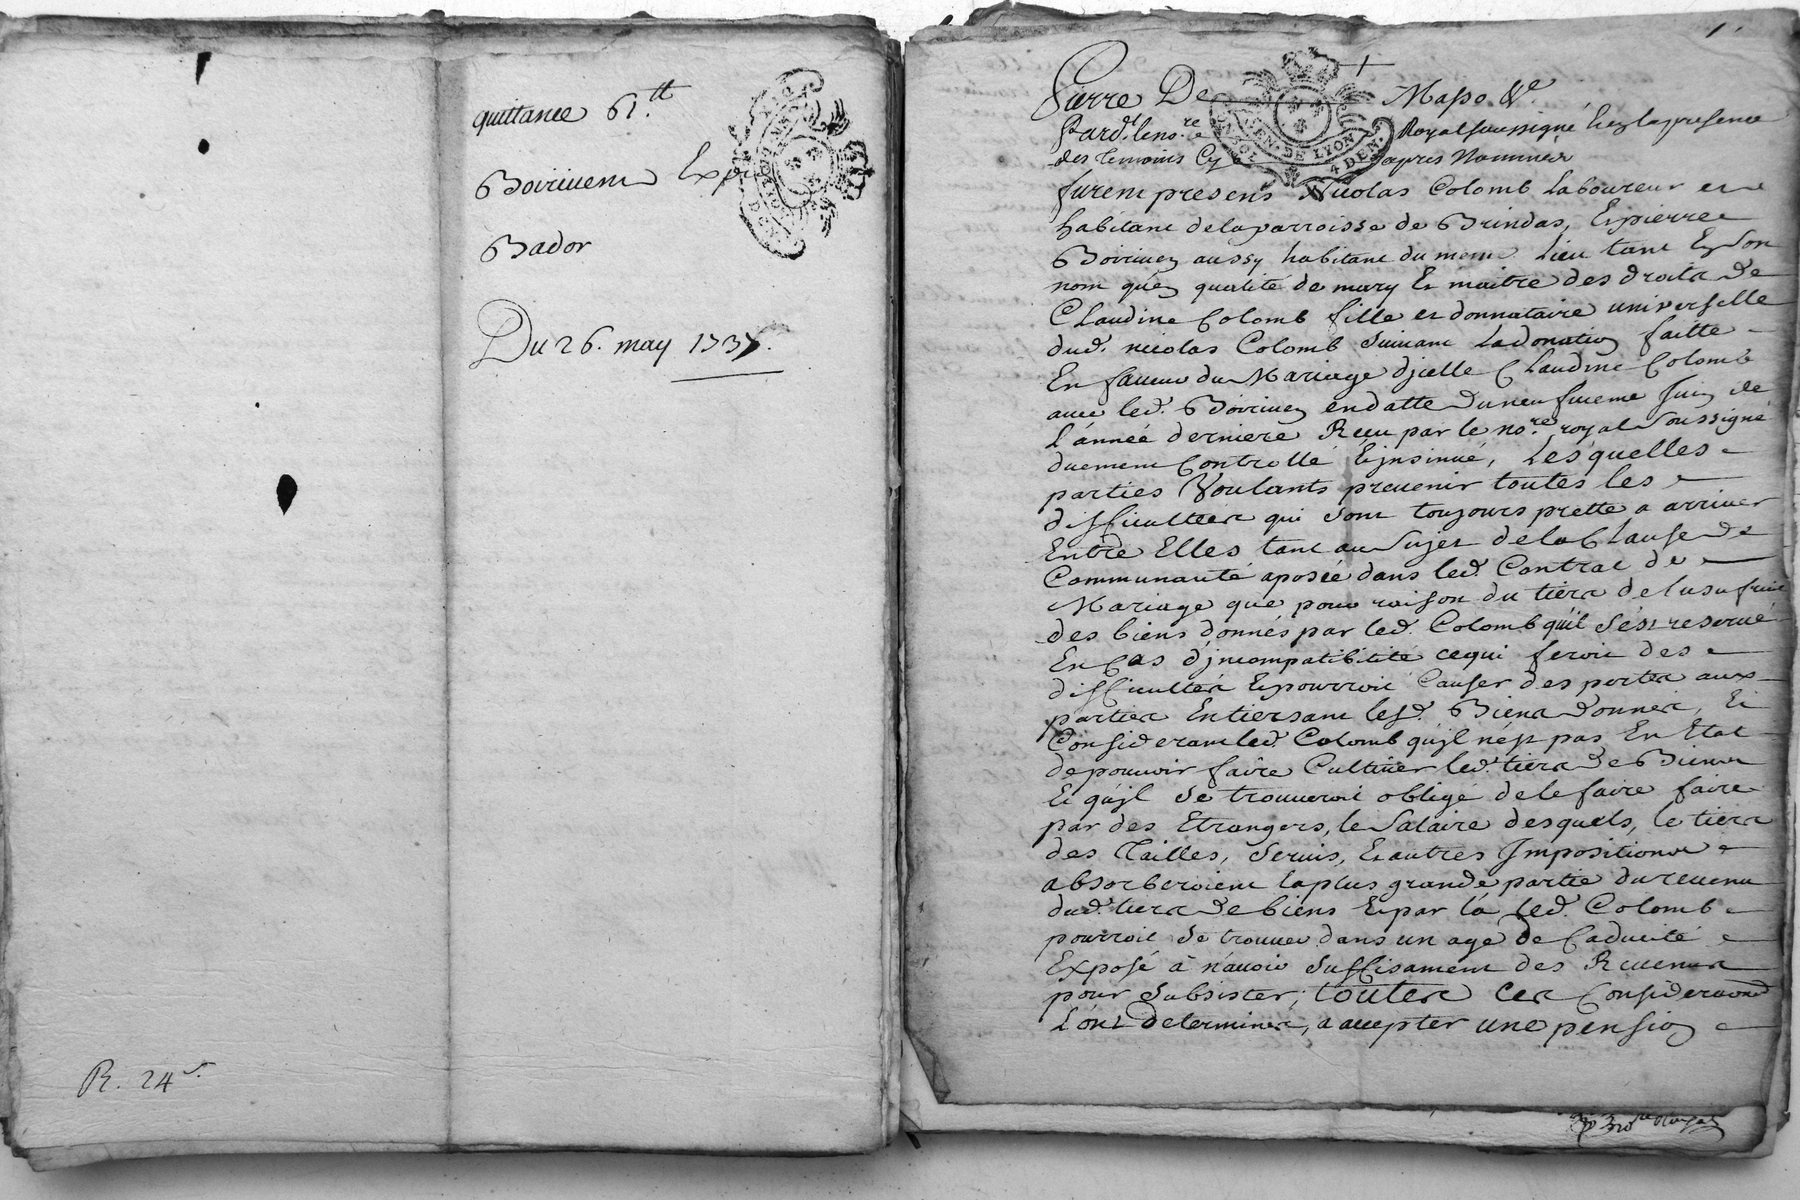 quittance 61.tt
Boiriven Exp
Bador
Du 26. may 1737.
R. 24 s.
Pierre De Masso &c.
Pard.t le no.re Royal soussigné Et en la presence
des temoins Cy apres Nommés
furent presens Nicolas Colomb Laboureur et
habitant de la parroisse de Brindas, Et pierre
Boiriven aussy habitant du meme Lieu tant En son
nom que, qualité de mary Et maitre des droits de
Claudine Colomb fille et donnataire universelle
dud. nicolas Colomb suivant La donation faitte
En faveur du Mariage d'jcelle Claudine Colomb
avec led. Boiriven en datte du neufvieme Juin de
L'année derniere Receu par le no.re royal soussigné
duement Controllé Et jnsinué, Lesquelles
parties Voulants prevenir toutes les
difficultés qui sont toujours prette a arriver
Entre Elles tant au sujet de la Clause de
Communauté aposée dans led. Contrat de
Mariage que pour raison du tiers de l'usufruit
des biens donnés par led. Colomb qu'il s'est reservé
En Cas d'jncompatibilité ce qui feroit des
difficultés Et pourroit Causer des pertes aux
parties En tiersant lesd. Biens donnés, Et
Considerant led. Colomb qu'jl n'est pas En Etat
de pouvoir faire Cultiver led. tiers de Biens
Et qu'jl se trouveroit obligé de le faire faire
par des Etrangers, le Salaire desquels, le tiers
des Tailles, servis, Et autres Impositions
absorberoient la plus grande partie du revenu
dud. tiers de biens Et par là led. Colomb
pourroit se trouver dans un age de Caducité
Exposé à n'avoir suffisament des Revenus
pour subsister; toutes ces Considerations
L'ont determinés, a accepter une pension